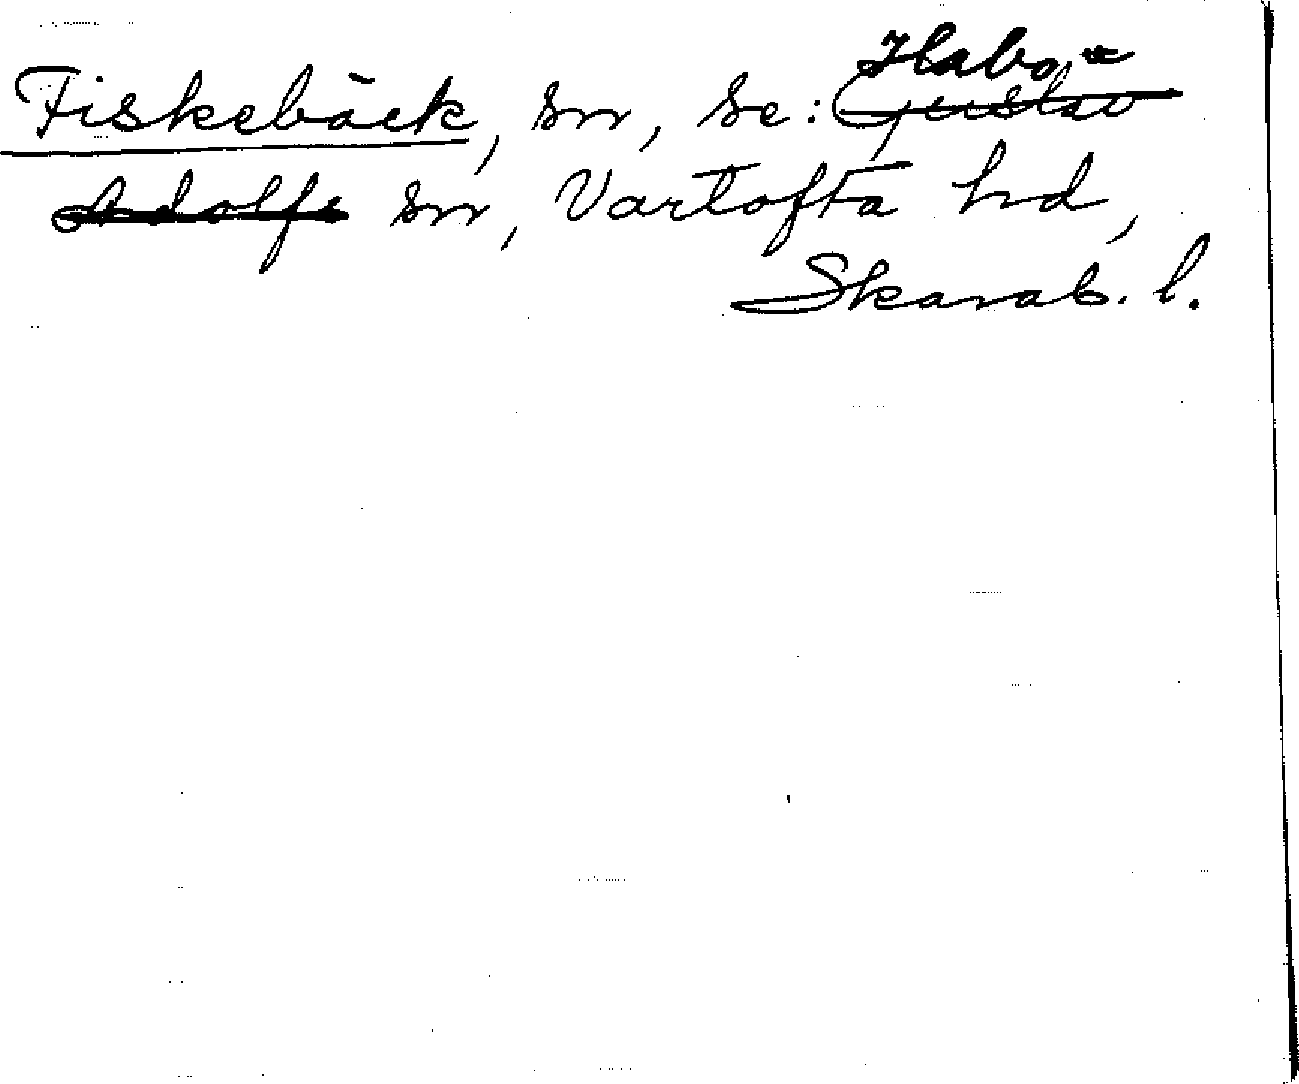 Habo
Fiskebäck, sn, se: Gustav
Adolfs sn, Vartofta hd,
Skarab. l.